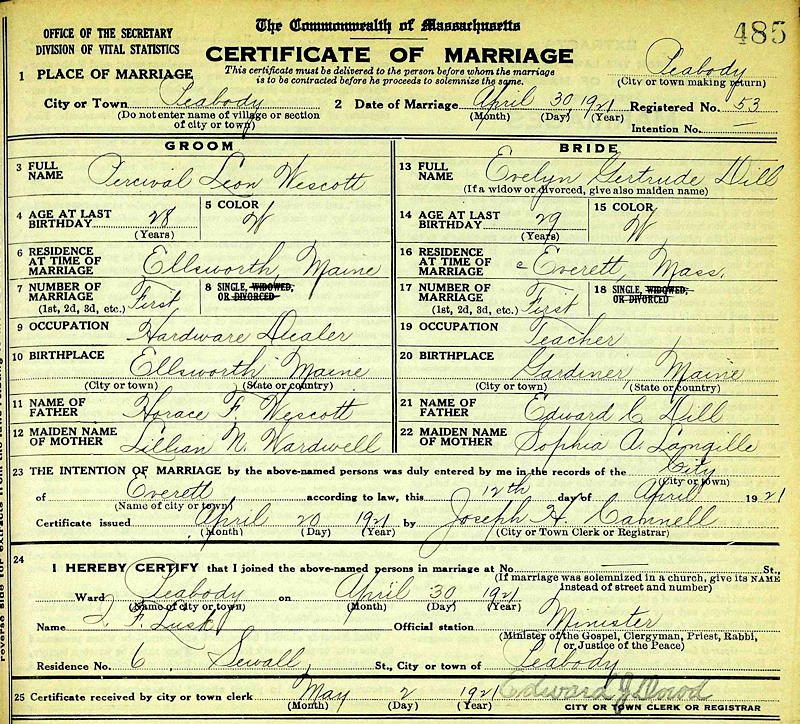 OFFICE OF THE SECRETARY
DIVISION OF VITAL STATISTICS
The Commonwealth of Massachusetts
485
CERTIFICATE OF MARRIAGE
This certificate must be delivered to the person before whom the marriage
is to be contracted before he proceeds to solemnize the same.
Peabody
(City or town making return)
1 PLACE OF MARRIAGE
City or Town Peabody
(Do not enter name of village or section
of city or town)
2 Date of Marriage April 30 1921
(Month) (Day) (Year)
Registered No. 53
Intention No. —
GROOM
3 FULL NAME Percival Leon Wescott
4 AGE AT LAST BIRTHDAY 28 (Years)
5 COLOR W
6 RESIDENCE AT TIME OF MARRIAGE Ellsworth, Maine
7 NUMBER OF MARRIAGE (1st, 2d, 3d, etc.) First
8 SINGLE, WIDOWED, OR DIVORCED
9 OCCUPATION Hardware Dealer
10 BIRTHPLACE Ellsworth Maine
(City or town) (State or country)
11 NAME OF FATHER Horace F. Wescott
12 MAIDEN NAME OF MOTHER Lillian N. Wardwell
BRIDE
13 FULL NAME Evelyn Gertrude Dill
(If a widow or divorced, give also maiden name)
14 AGE AT LAST BIRTHDAY 29 (Years)
15 COLOR W
16 RESIDENCE AT TIME OF MARRIAGE Everett, Mass.
17 NUMBER OF MARRIAGE (1st, 2d, 3d, etc.) First
18 SINGLE, WIDOWED, OR DIVORCED
19 OCCUPATION Teacher
20 BIRTHPLACE Gardiner Maine
(City or town) (State or country)
21 NAME OF FATHER Edward C Dill
22 MAIDEN NAME OF MOTHER Sophia A. Langille
23 THE INTENTION OF MARRIAGE by the above-named persons was duly entered by me in the records of the City
(City or town)
of Everett according to law, this 12th day of April 1921
(Name of city or town)
Certificate issued April 20 1921 by Joseph H. Cannell
(Month) (Day) (Year) (City or Town Clerk or Registrar)
24 I HEREBY CERTIFY that I joined the above-named persons in marriage at No. — St.,
(If marriage was solemnized in a church, give its NAME
instead of street and number)
Ward Peabody on April 30 1921
(Name of city or town) (Month) (Day) (Year)
Name F. Lusk Official station Minister
(Minister of the Gospel, Clergyman, Priest, Rabbi,
or Justice of the Peace)
Residence No. 6 Sewall St., City or town of Peabody
25 Certificate received by city or town clerk May 2 1921 Edward J Dowd
(Month) (Day) (Year) CITY OR TOWN CLERK OR REGISTRAR